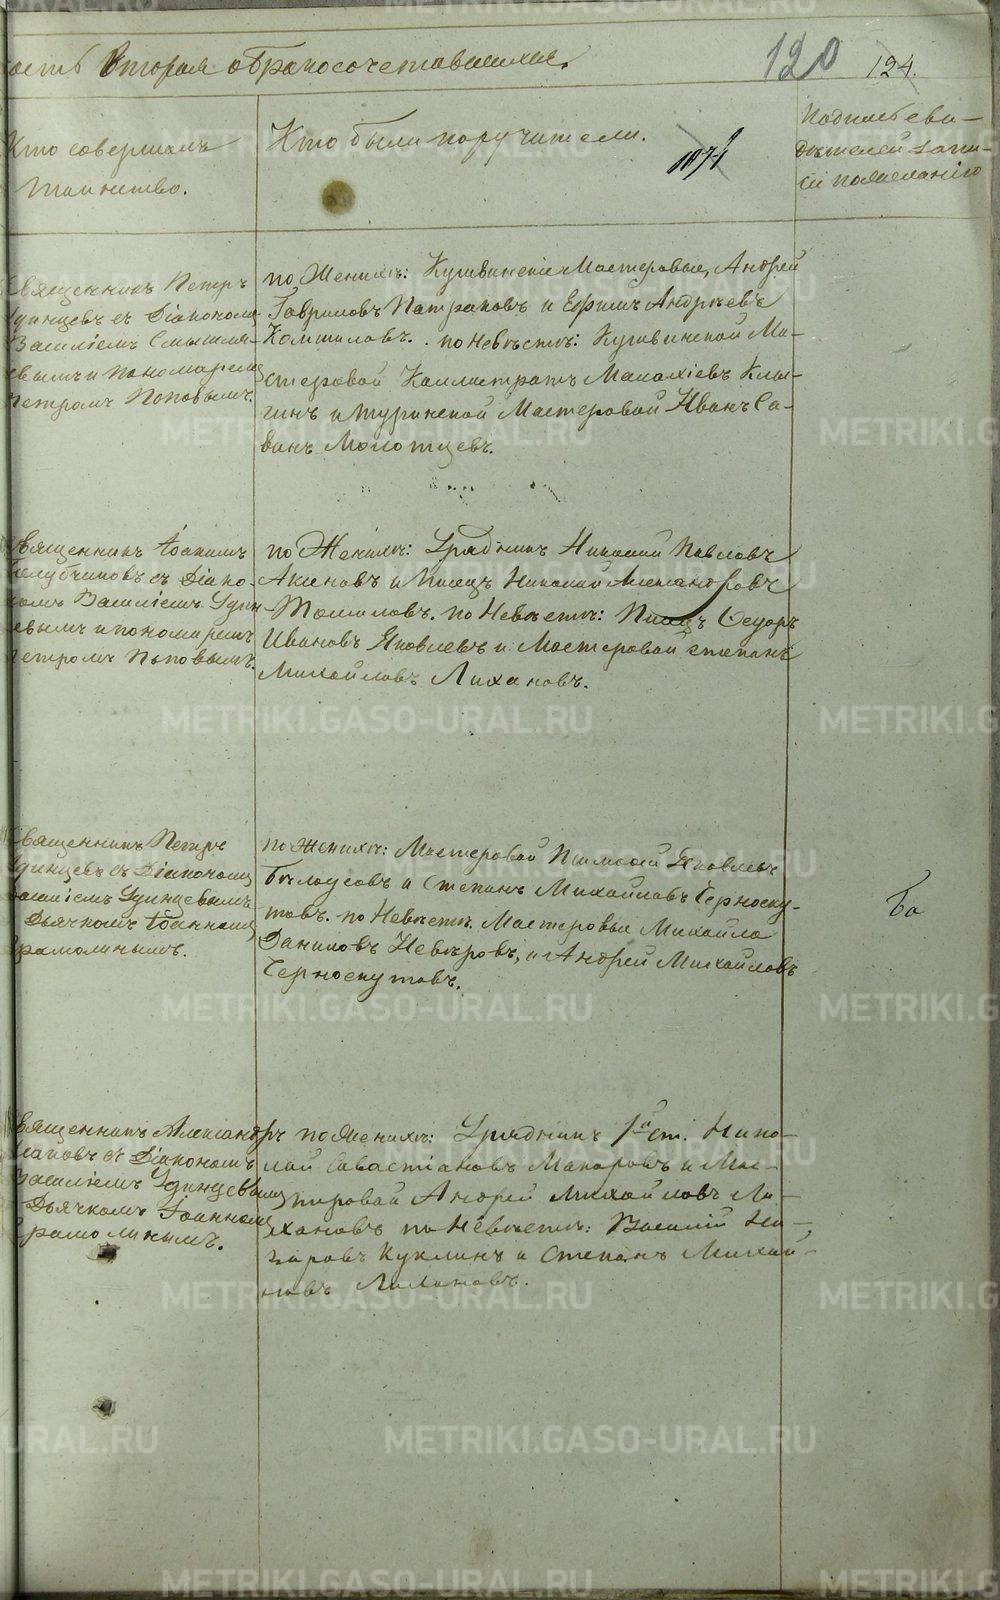 асть Вторая о бракосочетавшихся.
120 124.
Кто совершалъ
таинство.
Кто были поручители.
Подпись сви-
дѣтелей запи-
си по желанію
священникъ Петръ
Удинцевъ съ Діакономъ
Василіемъ Смышля-
евымъ и пономаремъ
Петромъ Поповымъ.
по Женихѣ: Кушвинскіе Мастеровые, Андрей
Гавриловъ Патраковъ и Ефимъ Андреевъ
Комшиловъ. по Невѣстѣ: Кушвинской Ма-
стеровой Каллистратъ Малахіевъ Клы-
гинъ и Туринской Мастеровой Иванъ Са-
винъ Молотцевъ.
священникъ Іоакимъ
съ Діако-
номъ Василіемъ Удин-
цевымъ и пономаремъ
Петромъ Поповымъ.
по Женихѣ: Урядникъ Николай Павловъ
Акиновъ и Писецъ Николай Александровъ
Томиловъ. по Невѣстѣ: Писецъ Ѳедоръ
Ивановъ Яковлевъ и Мастеровой Степанъ
Михайловъ Лихановъ.
священникъ Петръ
Удинцевъ съ Діакономъ
Василіемъ Удинцевымъ
Дьячкомъ Іоанномъ
Ермолинымъ.
по Женихѣ: Мастеровой Пимонъ Яковлевъ
Бѣлоусовъ и Степанъ Михайловъ Черноску-
товъ. по Невѣстѣ. Мастеровые Михайла
Даниловъ Невѣровъ, и Андрей Михайловъ
Черноскутовъ.
Ба
священникъ Александръ
съ Діакономъ
Василіемъ Удинцевымъ
Дьячкомъ Іоанномъ
Ермолинымъ.
по Женихѣ: Урядникъ 1й ст. Нико-
лай Савастіановъ Макаровъ и Мас-
теровой Андрей Михайловъ Ли-
хановъ по Невѣстѣ: Василій На-
заровъ Куклинъ и Степанъ Михай-
ловъ Лихановъ.
METRIKI.GASO-URAL.RU